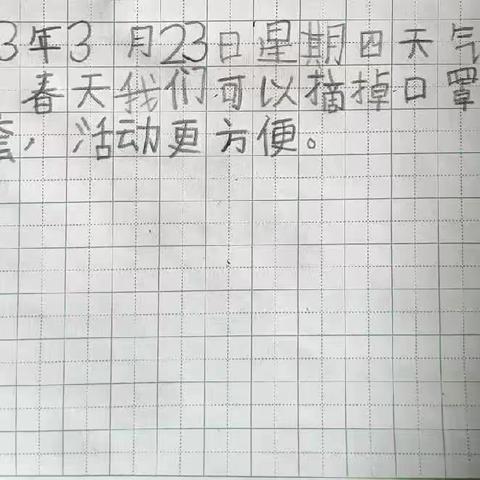 3年3月23日星期四天气
春天我们可以摘掉口罩
套，活动更方便。